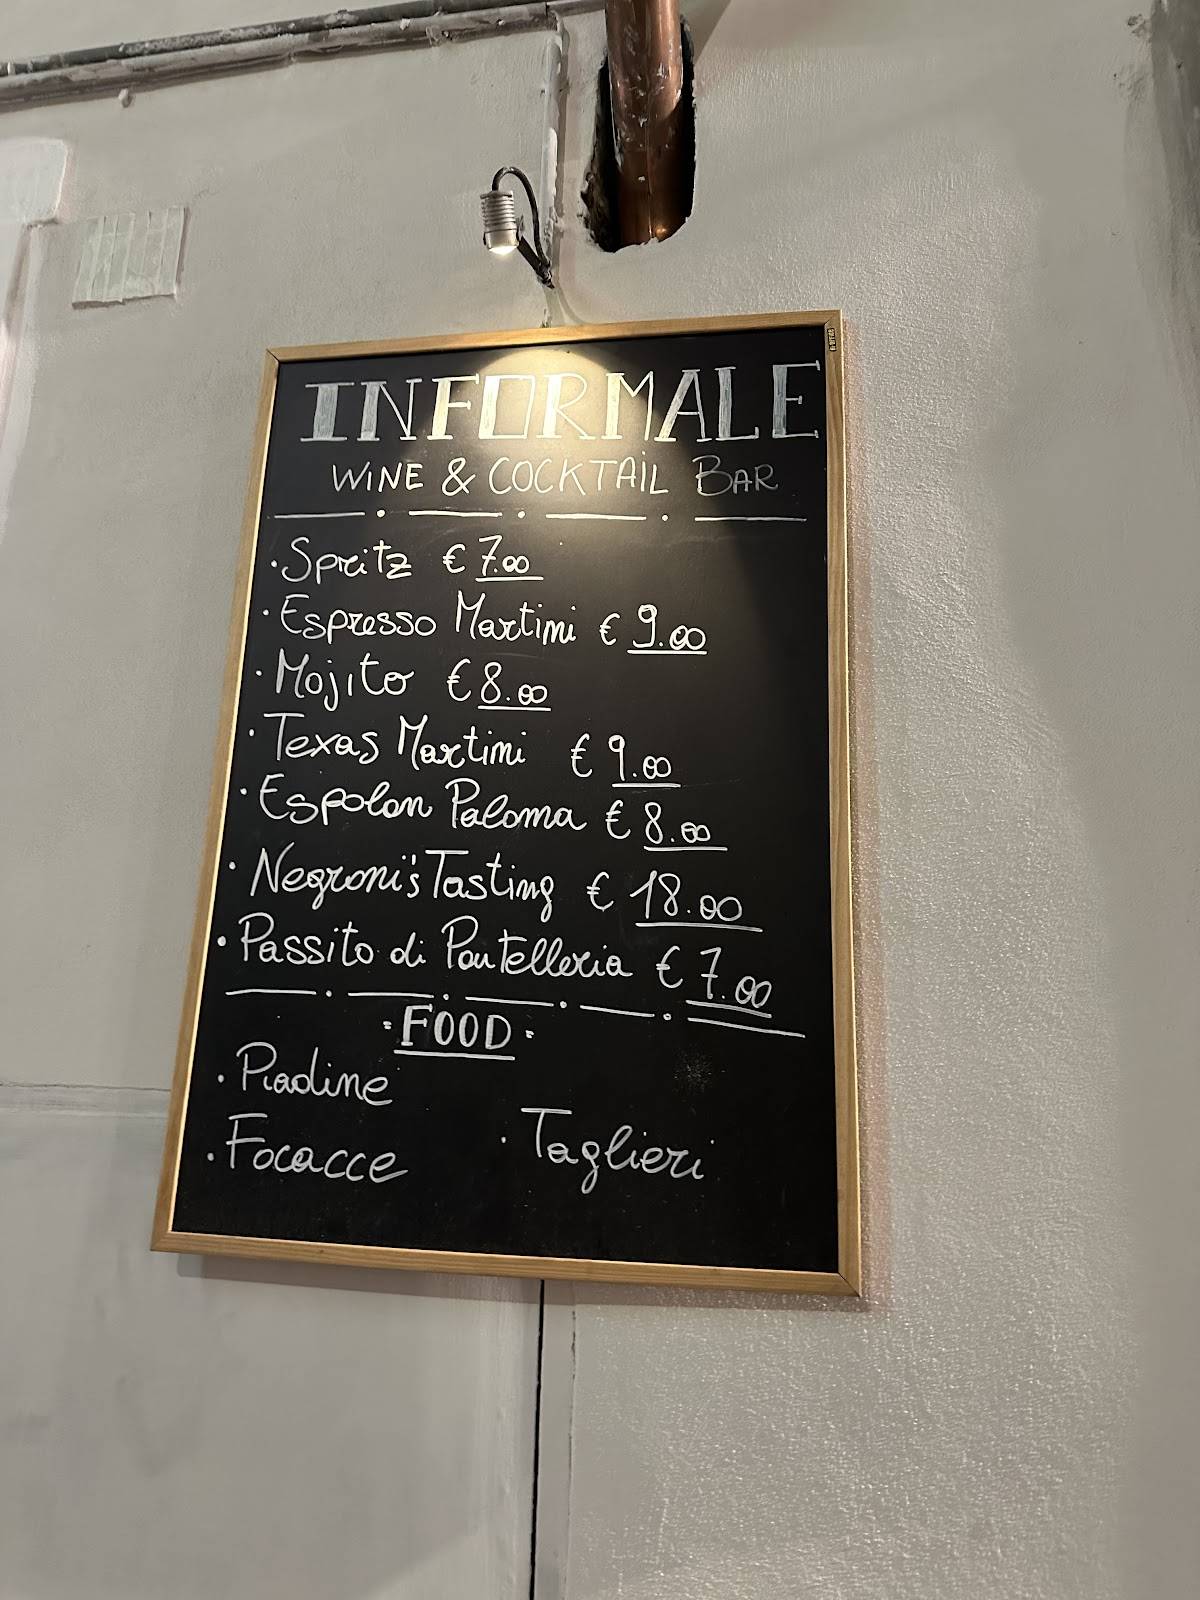 INFORMALE
WINE & COCKTAIL BAR
• Spritz € 7.00
• Espresso Martini € 9.00
• Mojito € 8.00
• Texas Martini € 9.00
• Espolon Paloma € 8.00
• Negroni's Tasting € 18.00
• Passito di Pantelleria € 7.00
• FOOD •
• Piadine
• Focacce
• Taglieri